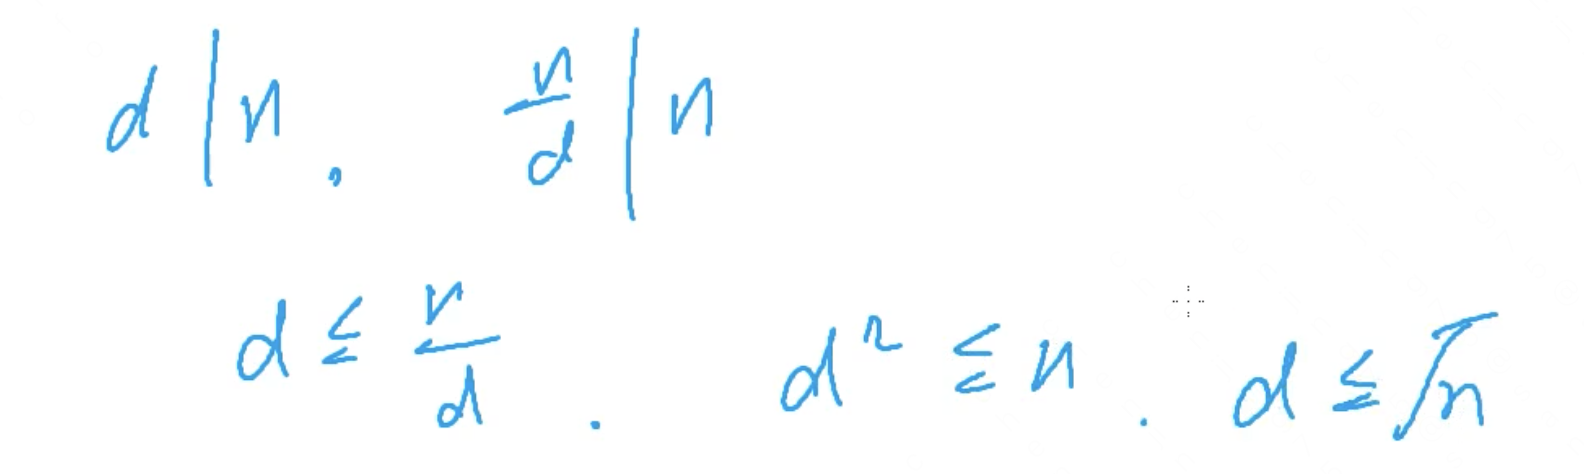 d | n , n/d | n
d ≤ n/d . d² ≤ n . d ≤ √n